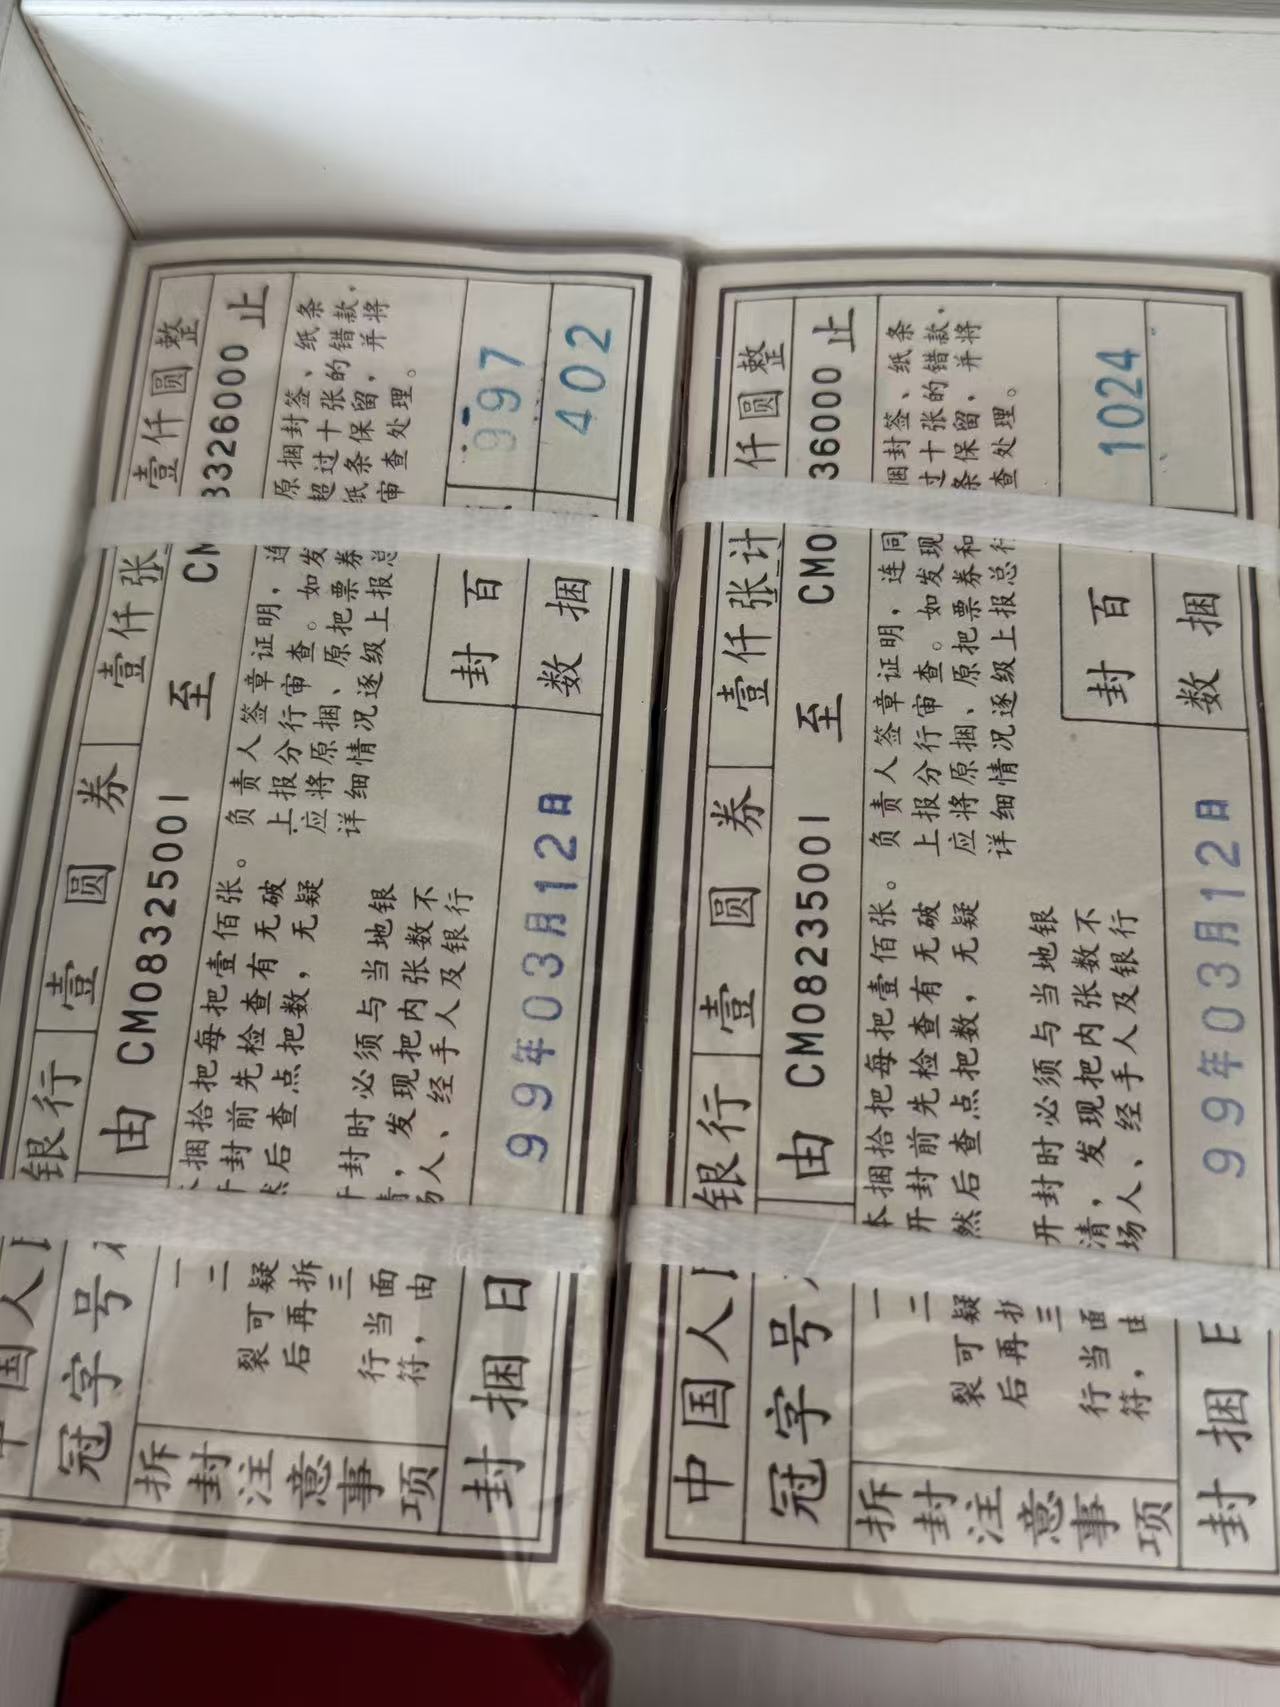 国人 银行 壹圆券 壹仟张 壹仟圆整
冠字号 由 CM08325001 至 326000 止
拆封注意事项
一 捆拾把每把壹佰张。
二 封前先检查有无破
裂可疑 后查点把数，无疑
后再拆
三 封时必须与当地银
行当面 ，发现把内张数不
符，由 人、经手人及银行
负责人签章证明， 原捆封签、纸条
上报分行审查。如发 超过十张的错款，
应将原捆、原把票券 纸条保留，并将
详细情况逐级上报总 审查处理。
封捆日 99年03月12日
封百 997
捆数 402
中国人 银行 壹圆券 壹仟张计 仟圆整
冠字号 由 CM08235001 至 CM0 36000 止
拆封注意事项
一 本捆拾把每把壹佰张。
二 开封前先检查有无破
裂可疑 然后查点把数，无疑
后再拆
三 开封时必须与当地银
行当面 清，发现把内张数不
符，由 场人、经手人及银行
负责人签章证明，连同 捆封签、纸条
上报分行审查。如发现 过十张的错款，
应将原捆、原把票券和 条保留，并将
详细情况逐级上报总行 查处理。
封捆 99年03月12日
封百 1024
捆数